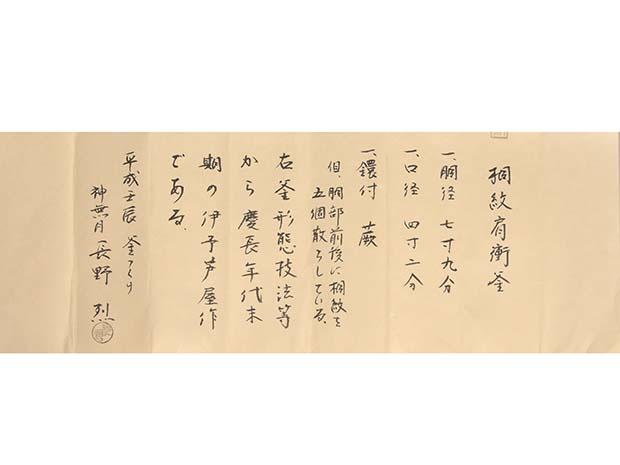 桐紋肩衝釜
一、胴径 七寸九分
一、口径 四寸二分
一、鐶付 蕨
但、胴部前後に桐紋を
五個散らしている。
右釜形態技法等
から慶長年代末
期の伊予芦屋作
である。
平成壬辰 釜つくり
神無月 長野 烈